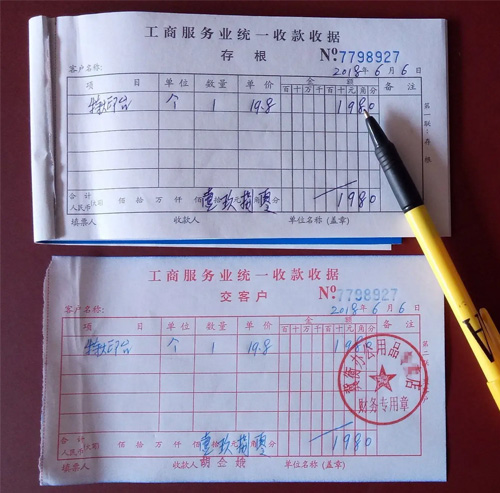 工商服务业统一收款收据
存根 No 7798927
客户名称: 2018年6月6日
项目 单位 数量 单价 金额 备注
百十万千百十元角分
特大印台 个 1 19.8 1980
第一联:存根
合计
人民币(大写) 佰拾万仟佰壹拾玖元捌角零分 1980
填票人 收款人 单位名称(盖章)
工商服务业统一收款收据
交客户 No 7798927
客户名称: 2018年6月6日
项目 单位 数量 单价 金额 备注
百十万千百十元角分
特大印台 个 1 19.8 1980
办公用品 店
财务专用章
合计
佰拾万仟佰壹拾玖元捌角零分 1980
填票人 收款人 单位名称(盖章)